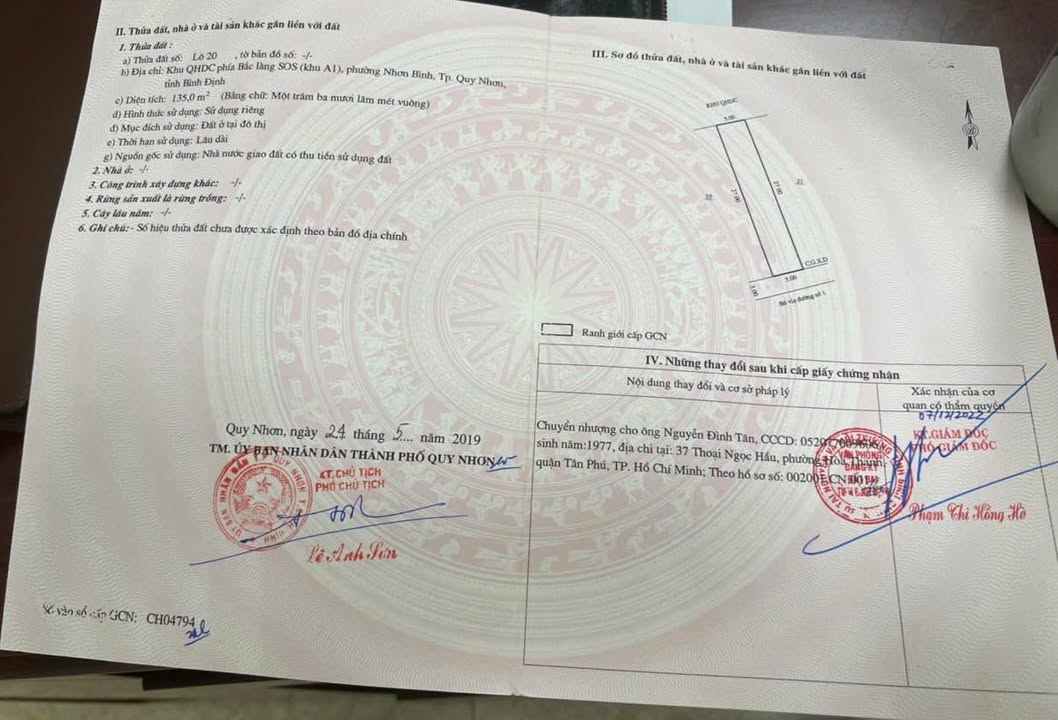 II. Thửa đất, nhà ở và tài sản khác gắn liền với đất
1. Thửa đất:
a) Thửa đất số: Lô 20 , tờ bản đồ số: -/-
b) Địa chỉ: Khu QHDC phía Bắc làng SOS (khu A1), phường Nhơn Bình, Tp. Quy Nhơn,
tỉnh Bình Định
c) Diện tích: 135,0 m² (Bằng chữ: Một trăm ba mươi lăm mét vuông)
d) Hình thức sử dụng: Sử dụng riêng
đ) Mục đích sử dụng: Đất ở tại đô thị
e) Thời hạn sử dụng: Lâu dài
g) Nguồn gốc sử dụng: Nhà nước giao đất có thu tiền sử dụng đất
2. Nhà ở: -/-
3. Công trình xây dựng khác: -/-
4. Rừng sản xuất là rừng trồng: -/-
5. Cây lâu năm: -/-
6. Ghi chú: - Số hiệu thửa đất chưa được xác định theo bản đồ địa chính
Quy Nhơn, ngày 24 tháng 5... năm 2019
TM. ỦY BAN NHÂN DÂN THÀNH PHỐ QUY NHƠN
KT.CHỦ TỊCH
PHÓ CHỦ TỊCH
Lê Anh Sơn
Số vào sổ cấp GCN: CH04794
III. Sơ đồ thửa đất, nhà ở và tài sản khác gắn liền với đất
KHU QHDC
5.00
27.00
27.00
19
21
CGXD
5.00
3.00
Bó vỉa đường số 1
Ranh giới cấp GCN
IV. Những thay đổi sau khi cấp giấy chứng nhận
Nội dung thay đổi và cơ sở pháp lý
Xác nhận của cơ
quan có thẩm quyền
07/12/2022
Chuyển nhượng cho ông Nguyễn Đình Tân, CCCD:
sinh năm:1977, địa chỉ tại: 37 Thoại Ngọc Hầu, phường Hòa Thạnh,
quận Tân Phú, TP. Hồ Chí Minh; Theo hồ sơ số:
KT.GIÁM ĐỐC
PHÓ GIÁM ĐỐC
Phạm Thị Hồng Hò